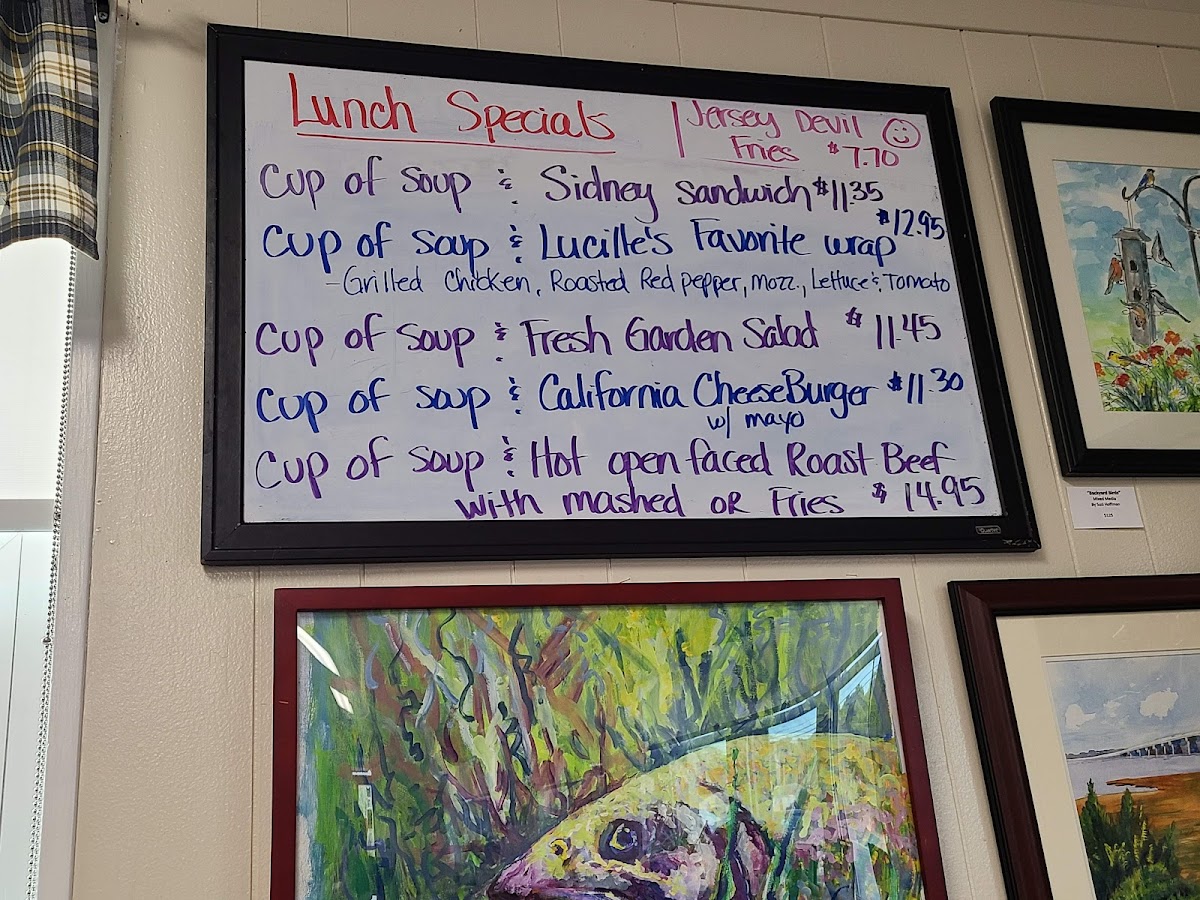 Lunch Specials
Jersey Devil
Fries $7.70
Cup of Soup & Sidney Sandwich $11.35
Cup of Soup & Lucille's Favorite Wrap $12.95
- Grilled Chicken, Roasted Red pepper, Mozz., Lettuce & Tomato
Cup of Soup & Fresh Garden Salad $11.45
Cup of Soup & California CheeseBurger $11.30
w/ mayo
Cup of Soup & Hot open faced Roast Beef
with mashed OR Fries $14.95
Quartet
"Backyard Birds"
Mixed Media
$125